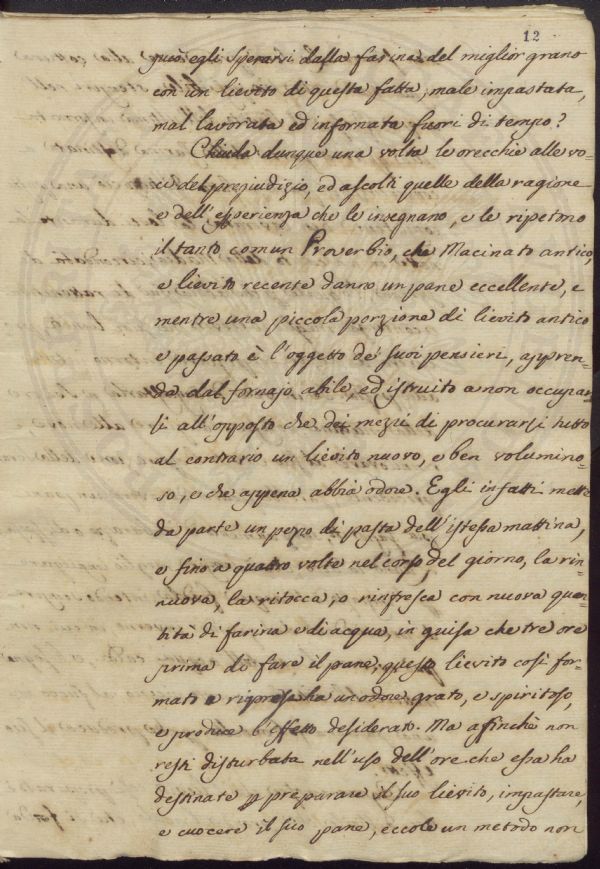 12
può egli sperarsi dalla farina del miglior grano
con un lievito di questa fatta, male impastata,
mal lavorata ed infornata fuori di tempo?
Chiuda dunque una volta le orecchie alle vo-
ci del pregiudizio, ed ascolti quelle della ragione
e dell'esperienza che le insegnano, e le ripetono
il tanto comun Proverbio, che Macinato antico,
e lievito recente danno un pane eccellente, e
mentre una piccola porzione di lievito antico
e passato è l'oggetto de' suoi pensieri, appren-
da dal fornajo abile, ed istruito a non occupar-
si all'opposto che dei mezzi di procurarsi tutto
al contrario un lievito nuovo, e ben volumino-
so, e che appena abbia odore. Egli infatti mette
da parte un pezzo di pasta dell'istessa mattina,
e fino a quattro volte nel corso del giorno, la rin-
nuova, la ritocca, o rinfresca con nuova quan-
tità di farina e di acqua, in guisa che tre ore
prima di fare il pane, questo lievito così for-
mato e ripreso ha un odore grato, e spiritoso,
e produce l'effetto desiderato. Ma affinchè non
resti disturbata nell'uso dell'ore che essa ha
destinate p preparare il suo lievito, impastare,
e cuocere il suo pane, eccole un metodo non